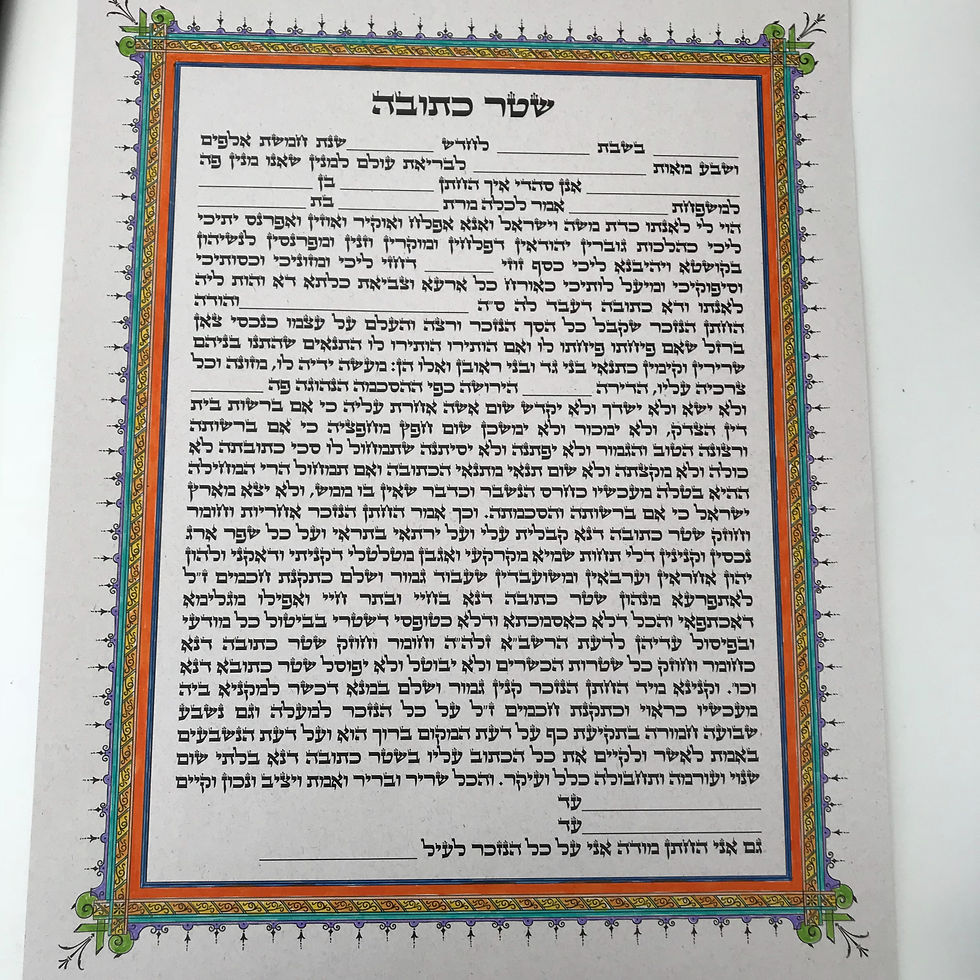 שטר כתובה
________ בשבת ________ לחדש ________שנת חמשת אלפים
ושבע מאות ________________ לבריאת עולם למנין שאנו מנין פה
________________ אנן סהדי איך החתן ________ בן ________
למשפחת ________ אמר לכלה מרת ________ בת ________
הוי לי לאנתו כדת משה וישראל ואנא אפלח ואוקיר ואיזון ואפרנס יתיכי
ליכי כהלכות גוברין יהודאין דפלחין ומוקרין וזנין ומפרנסין לנשיהון
בקושטא ויהיבנא ליכי כסף זוזי ________ דחזי ליכי ומזוניכי וכסותיכי
וסיפוקיכי ומיעל לותיכי כאורח כל ארעא וצביאת כלתא דא והות ליה
לאנתו ודא כתובה דעבד לה ס״ה ________________והודה
החתן הנזכר שקבל כל הסך הנזכר ורצה והעלם על עצמו כנכסי צאן
ברזל שאם פיחתו פיחתו לו ואם הותירו הותירו לו התנאים שהתנו בניהם
שרירין וקימין כתנאי בני גד ובני ראובן ואלו הן: מעשה ידיה לו, מזונה וכל
צרכיה עליו, הדירה ________ הירושה כפי ההסכמה הנהוגה פה ________
ולא ישא ולא ישדך ולא יקדש שום אשה אחרת עליה כי אם ברשות בית
דין הצדק, ולא ימכור ולא ימשכן שום חפץ מחפציה כי אם ברשותה
ורצונה הטוב והגמור ולא יפתנה ולא יסיתנה שתמחול לו סכי כתובתה לא
כולה ולא מקצתה ולא שום תנאי מתנאי הכתובה ואם תמחול הרי המחילה
ההיא בטלה מעכשיו כחרס הנשבר וכדבר שאין בו ממש, ולא יצא מארץ
ישראל כי אם ברשותה והסכמתה. וכך אמר החתן הנזכר אחריות וחומר
וחוזק שטר כתובה דנא קבלית עלי ועל ירתאי בתראי ועל כל שפר ארג
נכסין וקנינין דלי תחות שמיא מקרקעי ואגבן מטלטלי דקניתי ודאקני ולהון
יהון אחראין וערבאין ומשועבדין שעבוד גמור ושלם כתקנת חכמים ז״ל
לאתפרעא מנהון שטר כתובה דנא בחיי ובתר חיי ואפילו מגלימא
דאכתפאי והכל דלא כאסמכתא ודלא כטופסי דשטרי בביטול כל מודעי
ובפיסול עדיהן לדעת הרשב״א זלה״ה וחומר וחוזק שטר כתובה דנא
כחומר וחוזק כל שטרות הכשרים ולא יבוטל ולא יפוסל שטר כתובא דנא
וכו׳. וקנינא מיד החתן הנזכר קנין גמור ושלם במנא דכשר למקניא ביה
מעכשיו כראוי וכתקנת חכמים ז״ל על כל הנזכר למעלה וגם נשבע
שבועה חמורה בתקיעת כף על דעת המקום ברוך הוא ועל דעת הנשבעים
באמת לאשר ולקיים את כל הכתוב עליו בשטר כתובה דנא בלתי שום
שנוי ועורמה ותחבולה כלל ועיקר. והכל שריר ובריר ואמת ויציב ונכון וקיים
________________עד
________________עד
גם אני החתן מודה אני על כל הנזכר לעיל ________________